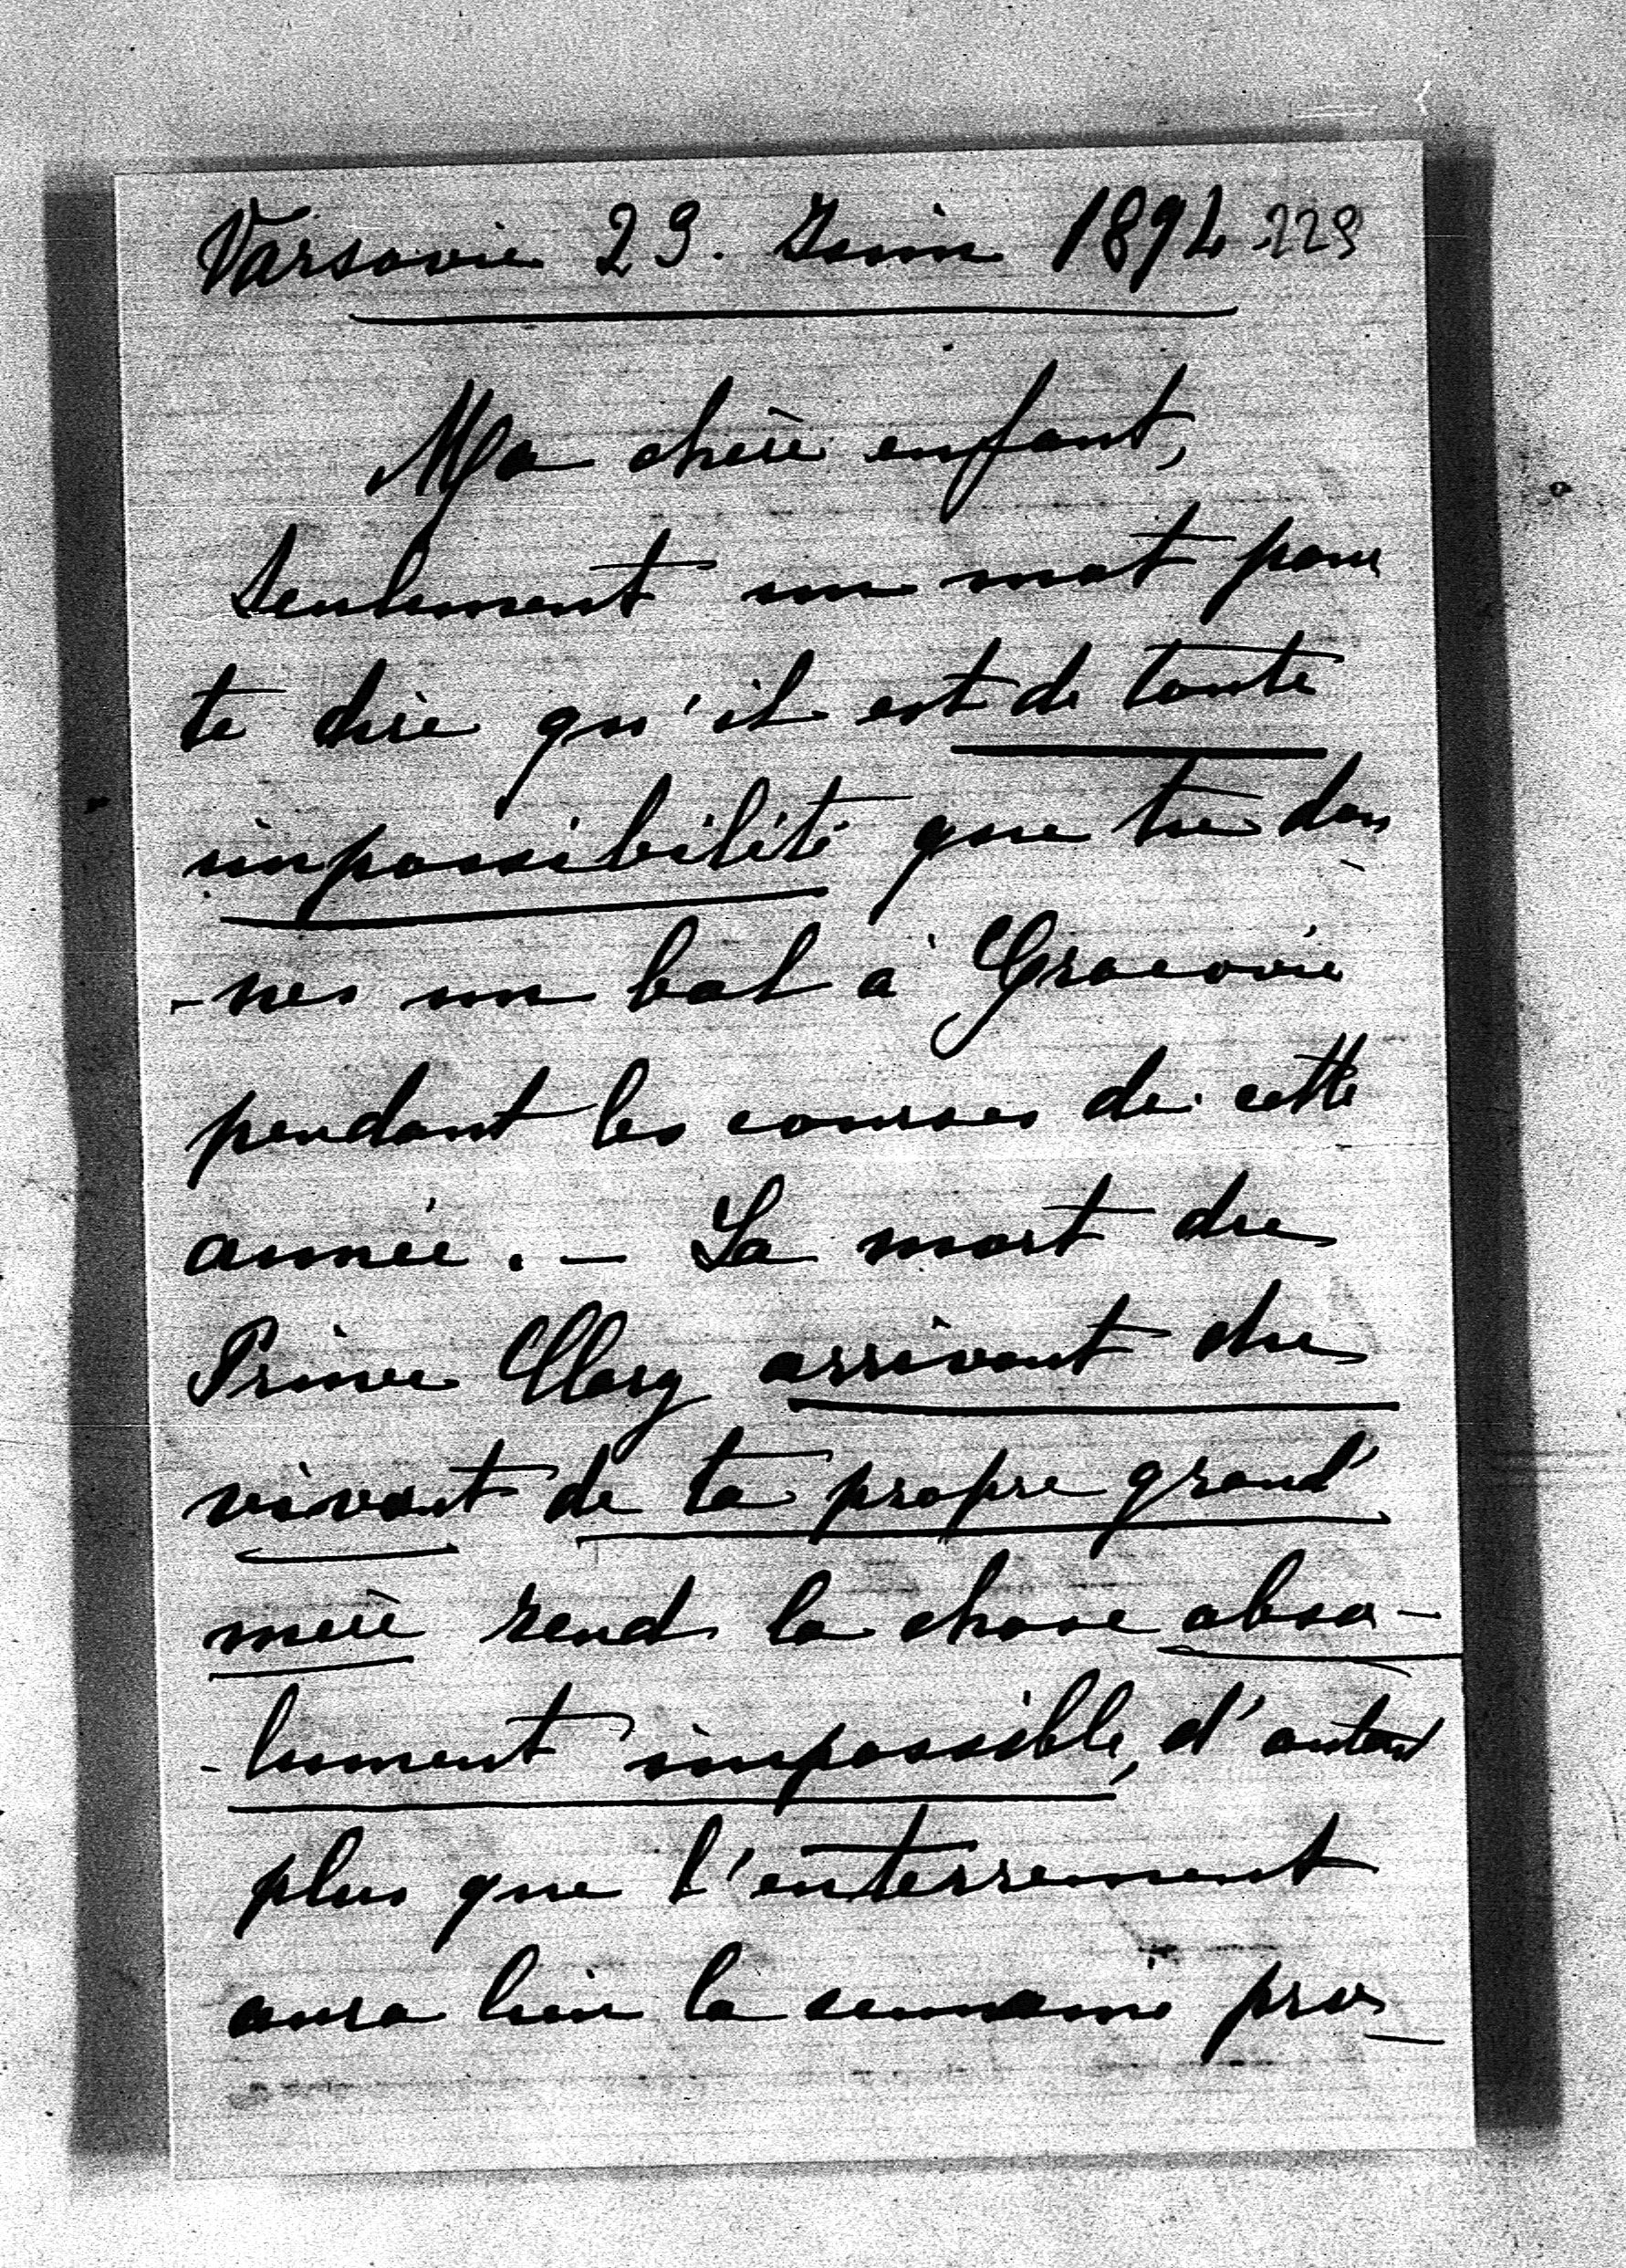 Varsovie 29. Juin 1894 229
Ma chère enfant,
Seulement un mot pour
te dire qu'il est de toute
impossibilité que tu don
-nes un bal à Cracovie
pendant les courses de cette
année. - La mort du
Prince Clary arrivant du
vivant de ta propre grand'
mère rend la chose abso-
-lument impossible, d'autant
plus que l'enterrement
aura lieu la semaine pro-